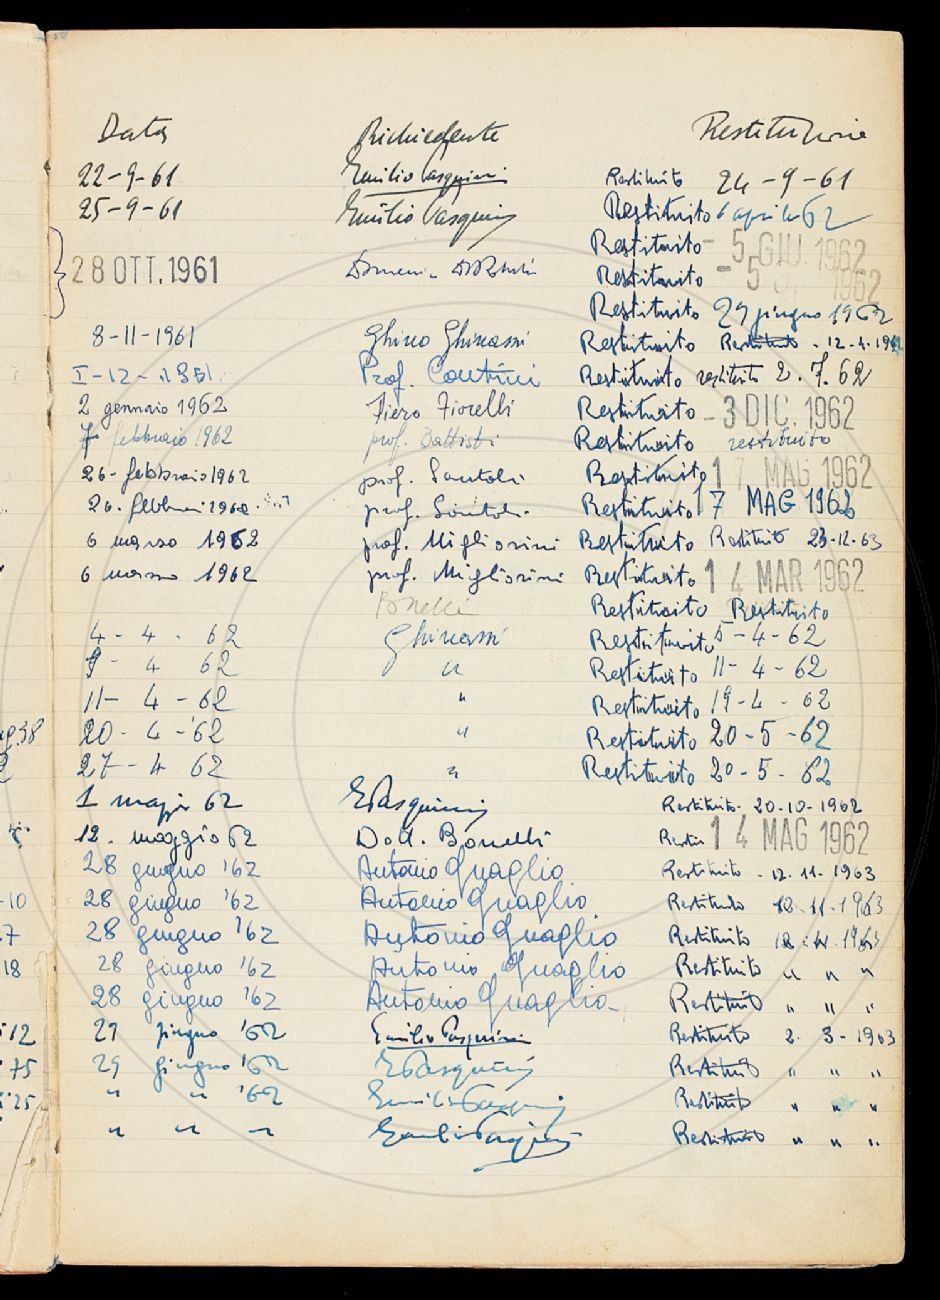 Data Richiedente Restituzione
22-9-61 Emilio Pasquini Restituito 24-9-61
25-9-61 Emilio Pasquini Restituito 6 aprile 62
Restituito - 5 GIU. 1962
28 OTT. 1961 Restituito - 5 1962
Restituito 29 giugno 1962
8-11-1961 Ghino Ghinassi Restituito Restituito - 12-4-1962
I-12-1961 Prof. Contini Restituito restituito 2.7.62
2 gennaio 1962 Piero Fiorelli Restituito - 3 DIC. 1962
7 febbraio 1962 prof. Battisti Restituito restituito
26- febbraio 1962 prof. Santoli Restituito 17 MAG 1962
26. febbraio 1962 prof. Santoli Restituito 17 MAG 1962
6 marzo 1962 prof. Migliorini Restituito Restituito 23-12-63
6 marzo 1962 prof. Migliorini Restituito 14 MAR 1962
Bonelli Restituito Restituito
4-4-62 Ghinassi Restituito 5-4-62
9-4 62 " Restituito 11-4-62
11-4-62 " Restituito 19-4-62
20-4-62 " Restituito 20-5-62
27-4 62 " Restituito 20-5-62
1 maggio 62 E Pasquini Restituito 20-10-1962
12. maggio 62 Dott. Bonelli 14 MAG 1962
28 giugno '62 Antonio Quaglio Restituito - 12.11.1963
28 giugno '62 Antonio Quaglio Restituito 12.11.1963
28 giugno '62 Antonio Quaglio Restituito 12.11.1963
28 giugno '62 Antonio Quaglio Restituito " " "
28 giugno '62 Antonio Quaglio Restituito " " "
29 giugno '62 Emilio Pasquini Restituito 2. 3-1963
29 giugno '62 E Pasquini Restituito " " "
" " '62 Emilio Pasquini Restituito " " "
" " " Emilio Pasquini Restituito " " "